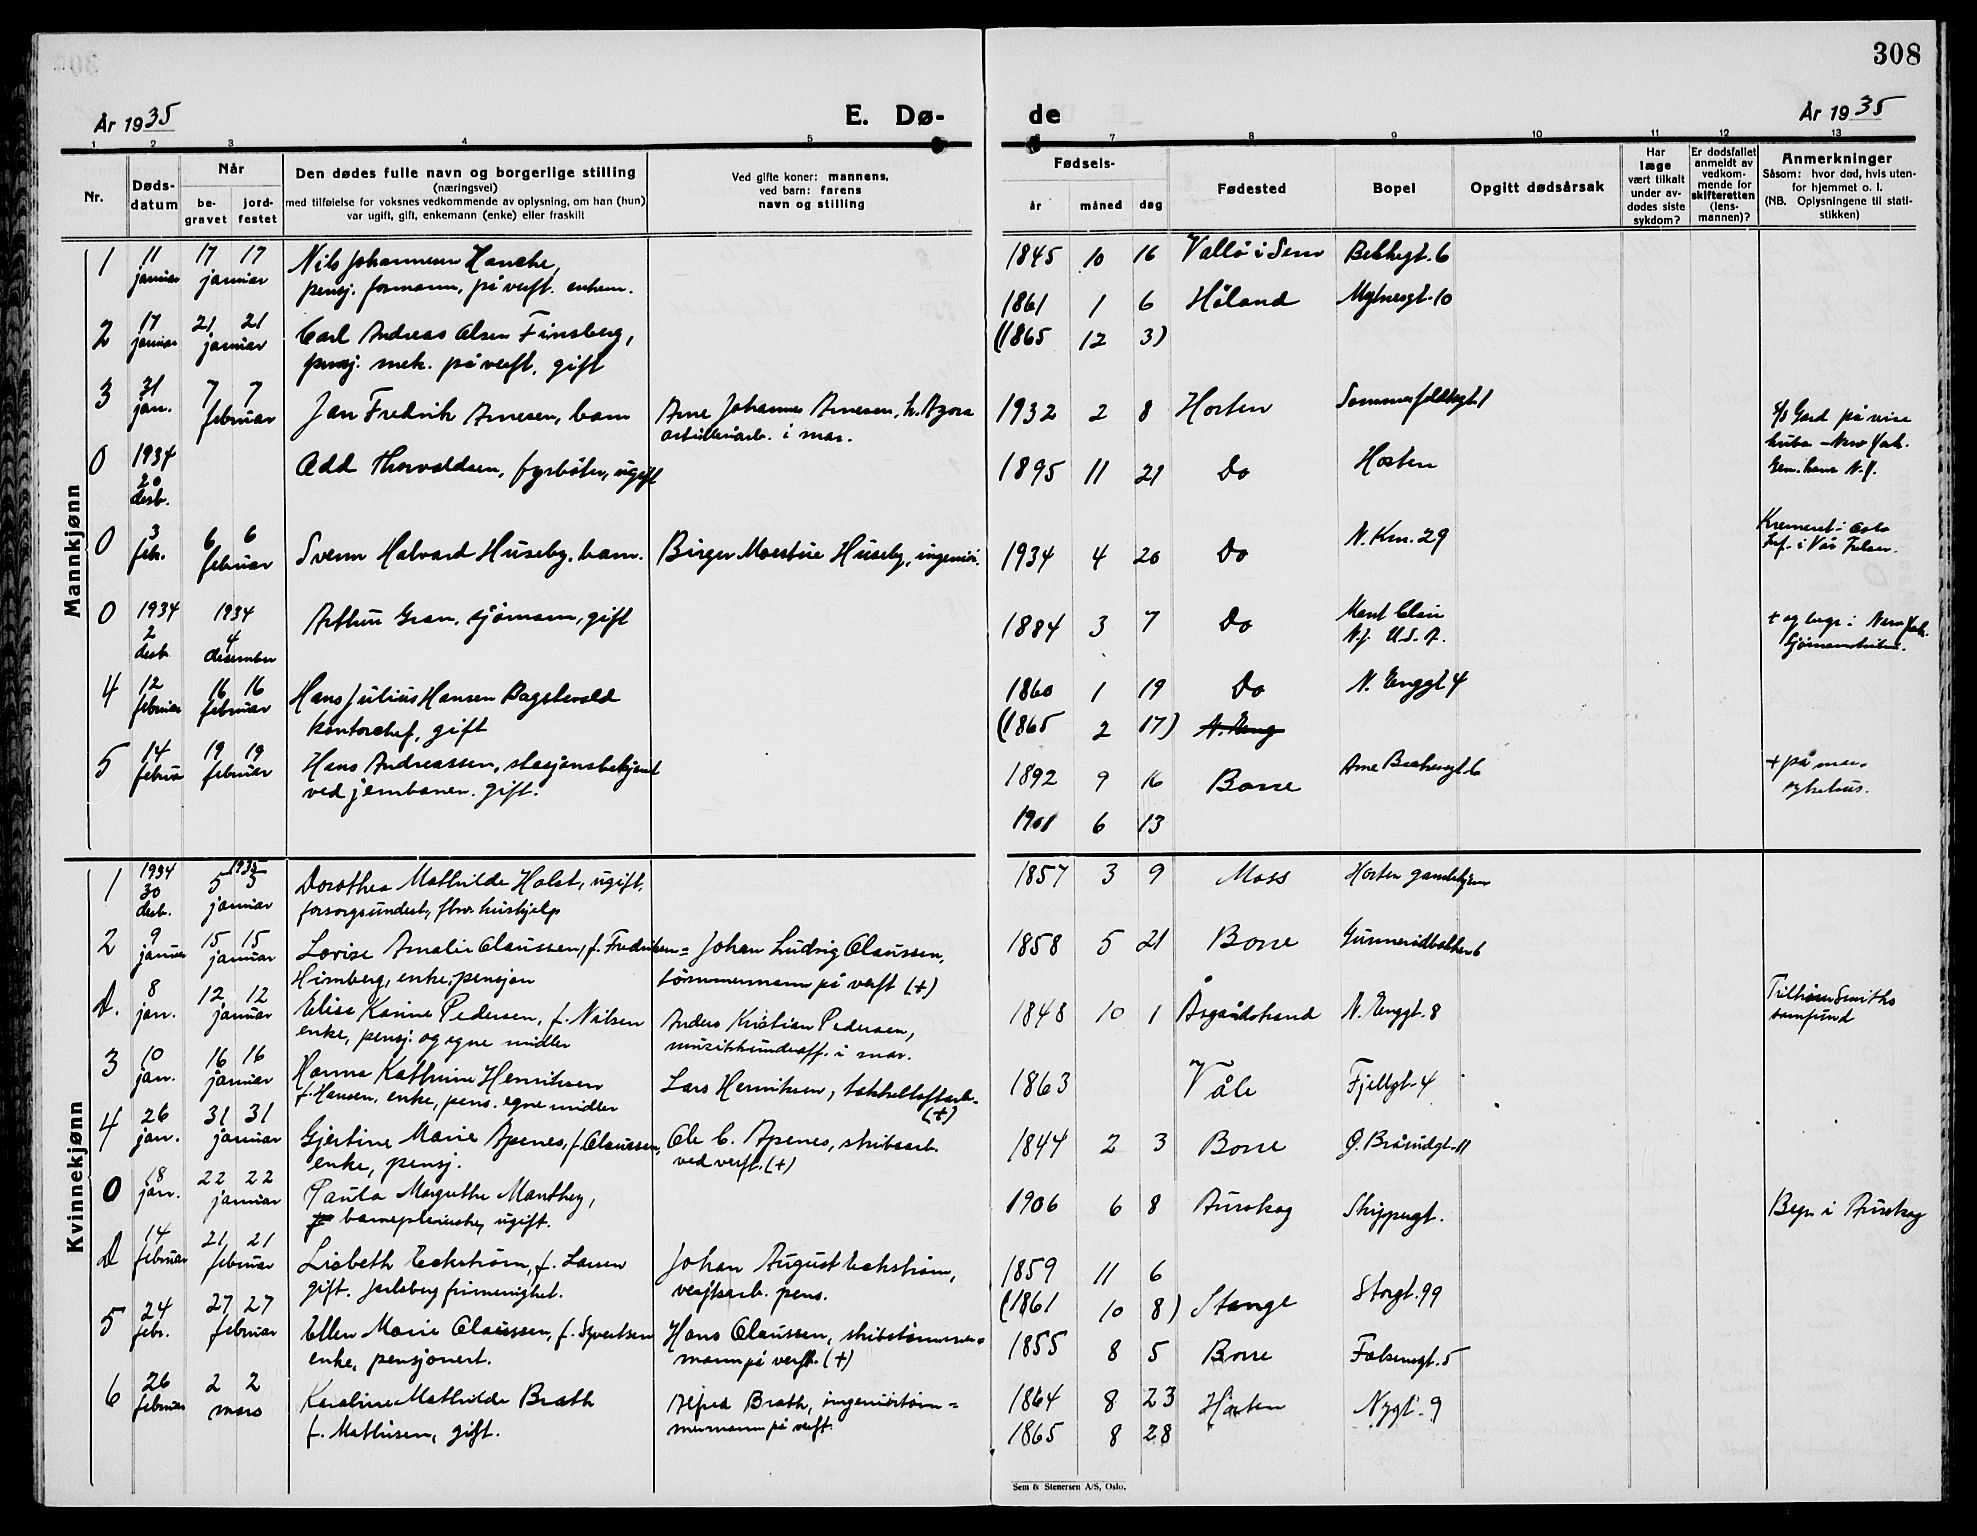 308
År 1935 E. Dø- de År 1935
1 2 3 4 5 6 7 8 9 10 11 12 13
Nr.
Døds-
datum
Når
be-
gravet
jord-
festet
Den dødes fulle navn og borgerlige stilling
(næringsvei)
med tilføielse for voksnes vedkommende av oplysning, om han (hun)
var ugift, gift, enkemann (enke) eller fraskilt
Ved gifte koner: mannens,
ved barn: farens
navn og stilling
Fødsels-
år måned dag
Fødested
Bopel
Opgitt dødsårsak
Har
læge
vært tilkalt
under av-
dødes siste
sykdom?
Er dødsfallet
anmeldt av
vedkom-
mende for
skifteretten
(lens-
mannen)?
Anmerkninger
Såsom: hvor død, hvis uten-
for hjemmet o. l.
(NB. Oplysningene til stati-
stikken)
Mannkjønn
1 11 17 17 Nils Johannesen Hanche, 1845 10 16 Vallö i Sem Bekkegt. 6
januar januar pensj. formann, på verft. enkem.
1861 1 6 Höland 10
2 17 21 21 Carl Andreas Olsen Finsberg, (1865 12 3)
januar januar pensj. mek. på verft, gift
3 31 7 7 Jan Fredrik Arnesen, barn Arne Johannes Arnesen, 1932 2 8 Horten Sommerfeldtsgt. 1
jan. februar i mar.
0 1934 Odd Thorvaldsen, fyrböter, ugift 1895 11 21 Do Horten
20
desb.
S/S Gard på reise
Kuba - New York.
0 3 6 6 Svenn Halvard Huseby, barn. Birger Moestue Huseby, ingeniör. 1934 4 20 Do N. Krn. 29
febr. februar
Kremert i Oslo
0 1934 1934 Arthur Gran, sjömann, gift 1884 3 7 Do
2 4
desb. desember
N.J. U.S.A.
+ og begr. i New York.
4 12 16 16 Hans Julius Hansen Bagstevold 1860 1 19 Do N. Enggt 4
februar februar kontorchef, gift (1865 2 17) N. Eng
5 14 19 19 Hans Andreassen, stasjonsbetjent 1892 9 16 Borre 6
februar februar ved jernbanen. gift. 1901 6 13
+ på mar.
sykehus.
Kvinnekjønn
1 1934 1935 Dorothea Mathilde Holst, ugift, 1857 3 9 Moss Horten gamlehjem
30 5 5
desb. januar forsorgsunderst, fhv. hushjelp
2 9 15 15 Lovise Amalie Claussen, f. Fredriksen= Johan Ludvig Claussen, 1858 5 21 Borre 6
januar januar Himberg, enke, pensjon tömmermann på verft (+)
D. 8 12 12 Elise Karine Pedersen, f. Nilsen Anders Kristian Pedersen, 1848 10 1 Åsgårdstrand N. Enggt. 8
jan. januar enke, pensj. og egne midler musikkunderoff. i mar.
samfund
3 10 16 16 Hanna Kathrine Henriksen Lars Henriksen, takkelloftarb. 1863 Våle Fjellgt. 4
jan. januar f. Hansen, enke, pens. egne midler (+)
4 26 31 31 Gjertine Marie Apenes, f. Claussen, Ole C. Apenes, skibsarb. 1844 2 3 Borre Ø. Bråsudgt. 11
jan. januar enke, pensj. ved verft. (+)
0 18 22 22 Paula Margrethe Manthey, 1906 6 8 Aurskog Skippergt.
jan. januar barnepleierske, ugift.
Begr. i Aurskog
D 14 21 21 Lisbeth Eckström, f. Larsen Johan August Eckström, 1859 11 6
februar februar gift. Jarlsberg frimenighet. verftsarb. pens. (1861 10 8) Stange Storgt. 99
5 24 27 27 Ellen Marie Claussen, f. Syvertsen Hans Claussen, skibstömmer= 1855 8 5 Borre Falsensgt. 5
febr. februar enke, pensjonert. mann på verft. (+)
6 26 2 2 Karoline Mathilde Brath Alfred Brath, 1864 8 23 Horten Nygt. 9
februar mars f. Mathisen, gift. mermann på verft. 1865 8 28
Sem & Stenersen A/S, Oslo.